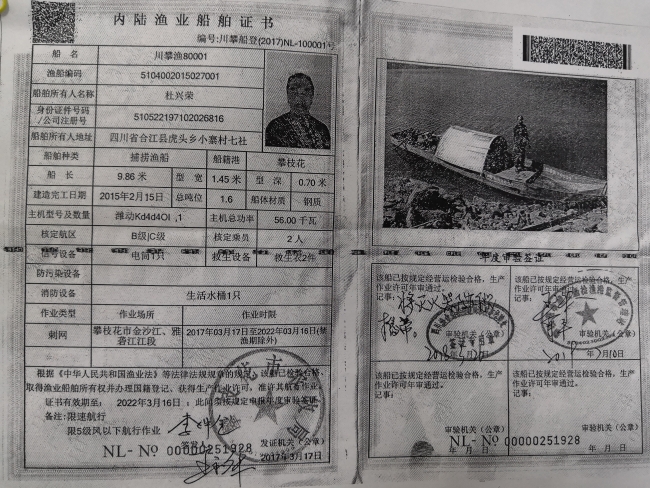 内陆渔业船舶证书
编号:川攀船登(2017)NL-100001号
船名 川攀渔80001
渔船编码 5104002015027001
船舶所有人名称 杜兴荣
身份证件号码/公司注册号 510522197102026816
船舶所有人地址 四川省合江县虎头乡小寨村七社
船舶种类 捕捞渔船 船籍港 攀枝花
船长 9.86 米 型宽 1.45 米 型深 0.70 米
建造完工日期 2015年2月15日 总吨位 1.6 船体材质 钢质
主机型号及数量 潍动Kd4d4OI ,1 主机总功率 56.00 千瓦
核定航区 B级|C级 核定乘员 2 人
信号设备 电筒1只 救生设备 救生衣2件
防污染设备
消防设备 生活水桶1只
作业类型 作业场所 作业时限
刺网 攀枝花市金沙江、雅砻江江段 2017年03月17日至2022年03月16日(禁渔期除外)
根据《中华人民共和国渔业法》等法律法规规章的规定,该船已检验合格,
取得渔业船舶所有权并办理国籍登记,获得生产作业许可,准许其航行作业。
证书有效期至: 2022年3月16日;
备注:限速航行
限5级风以下航行作业
发证机关(公章)
2017年3月17日
NL-№ 00000251928
年度审验签证
该船已按规定经营运检验合格,生产作业许可年审通过。
记事:
审验机关(公章)
该船已按规定经营运检验合格,生产作业许可年审通过。
记事:
审验机关(公章)
该船已按规定经营运检验合格,生产作业许可年审通过。
记事:
审验机关(公章)
年 月 日
该船已按规定经营运检验合格,生产作业许可年审通过。
记事:
审验机关(公章)
年 月 日
NL-№ 00000251928